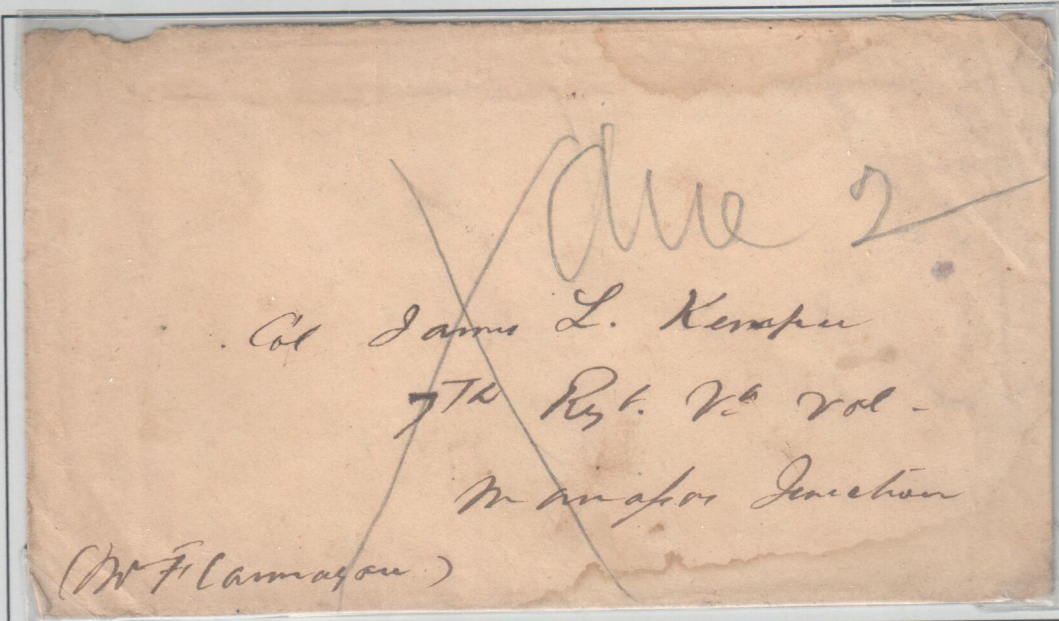 due 2
Col James L. Kemper
7th Regt. Va Vol -
Manassas Junction
(Mr Flannagan)